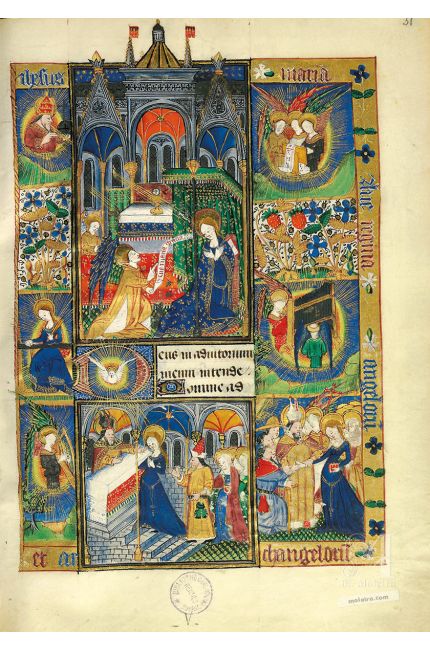 ihesus
maria
Aue regina
angeloru
Deus in adiutorium
meum intende
Domine ad
et ar
changeloru
moleiro.com